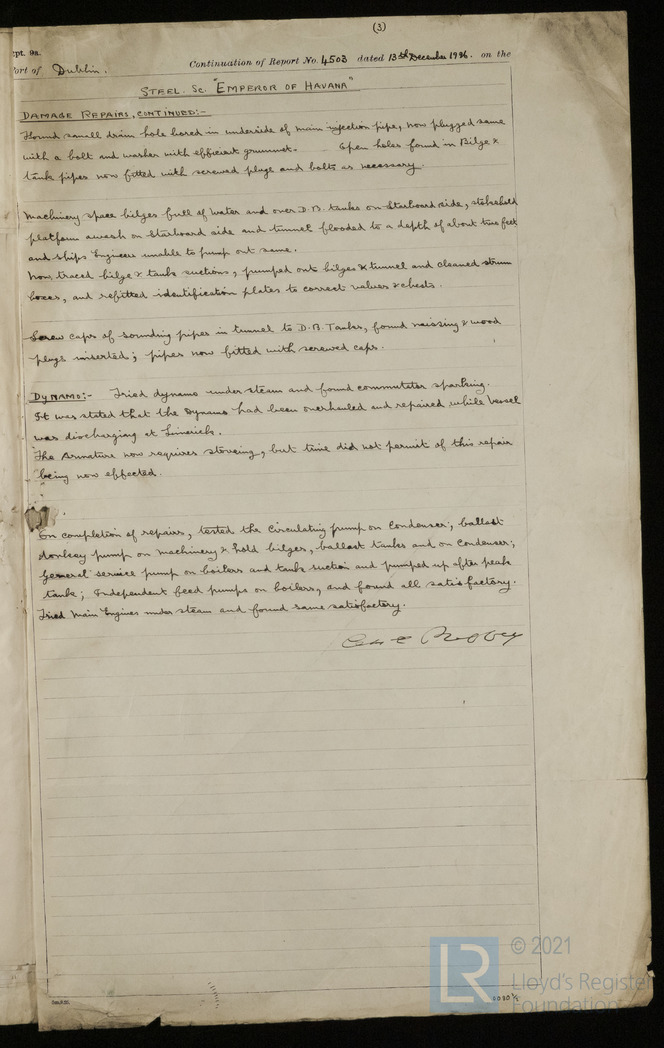 (3)
Rpt. 9a.
Port of Dublin.
Continuation of Report No. 4503 dated 13th December 1926. on the
STEEL Sc. "EMPEROR OF HAVANA"
DAMAGE REPAIRS, CONTINUED:-
Found small drain hole bored in underside of main injection pipe, now plugged same
with a bolt and washer with efficient grummet. Open holes found in Bilge &
tank pipes now fitted with screwed plugs and bolts as necessary.
Machinery space bilges full of water and over D.B. tanks on starboard side, stokehold
platform awash on starboard side and tunnel flooded to a depth of about two feet
and ships Engineers unable to pump out same.
Now traced bilge & tank suctions, pumped out bilges & tunnel and cleaned strum
boxes, and refitted identification plates to correct valves & chests.
Screw caps of sounding pipes in tunnel to D.B. Tanks, found missing & wood
plugs inserted; pipes now fitted with screwed caps.
DYNAMO:- Tried dynamo under steam and found commutator sparking.
It was stated that the Dynamo had been overhauled and repaired while Vessel
was discharging at Limerick.
The Armature now requires stoveing, but time did not permit of this repair
being now effected.
On completion of repairs, tested the circulating pump on Condenser; ballast
donkey pump on machinery & hold bilges, ballast tanks and on Condenser;
General service pump on boilers and tank suction and pumped up after peak
tank; Independent feed pumps on boilers, and found all satisfactory.
Tried Main Engines under steam and found same satisfactory.
© 2021
LR
Lloyd's Register
Foundation